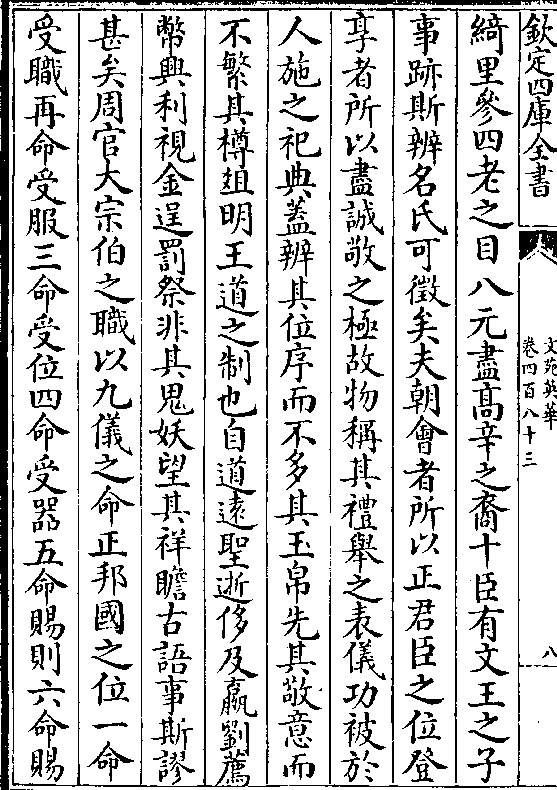 欽定四庫全書
文苑英華
卷四百八十三
八
綺里參四老之目八元盡髙辛之裔十臣有文王之子
事跡斯辨名氏可徵矣夫朝會者所以正君臣之位登
享者所以盡誠敬之極故物稱其禮舉之表儀功被於
人施之祀典蓋辨其位序而不多其玉帛先其敬意而
不繁其樽爼明王道之制也自道逺聖逝侈及嬴劉薦
幣興利視金逞罰祭非其鬼妖望其祥瞻古語事斯謬
甚矣周官大宗伯之職以九儀之命正邦國之位一命
受職再命受服三命受位四命受器五命賜則六命賜